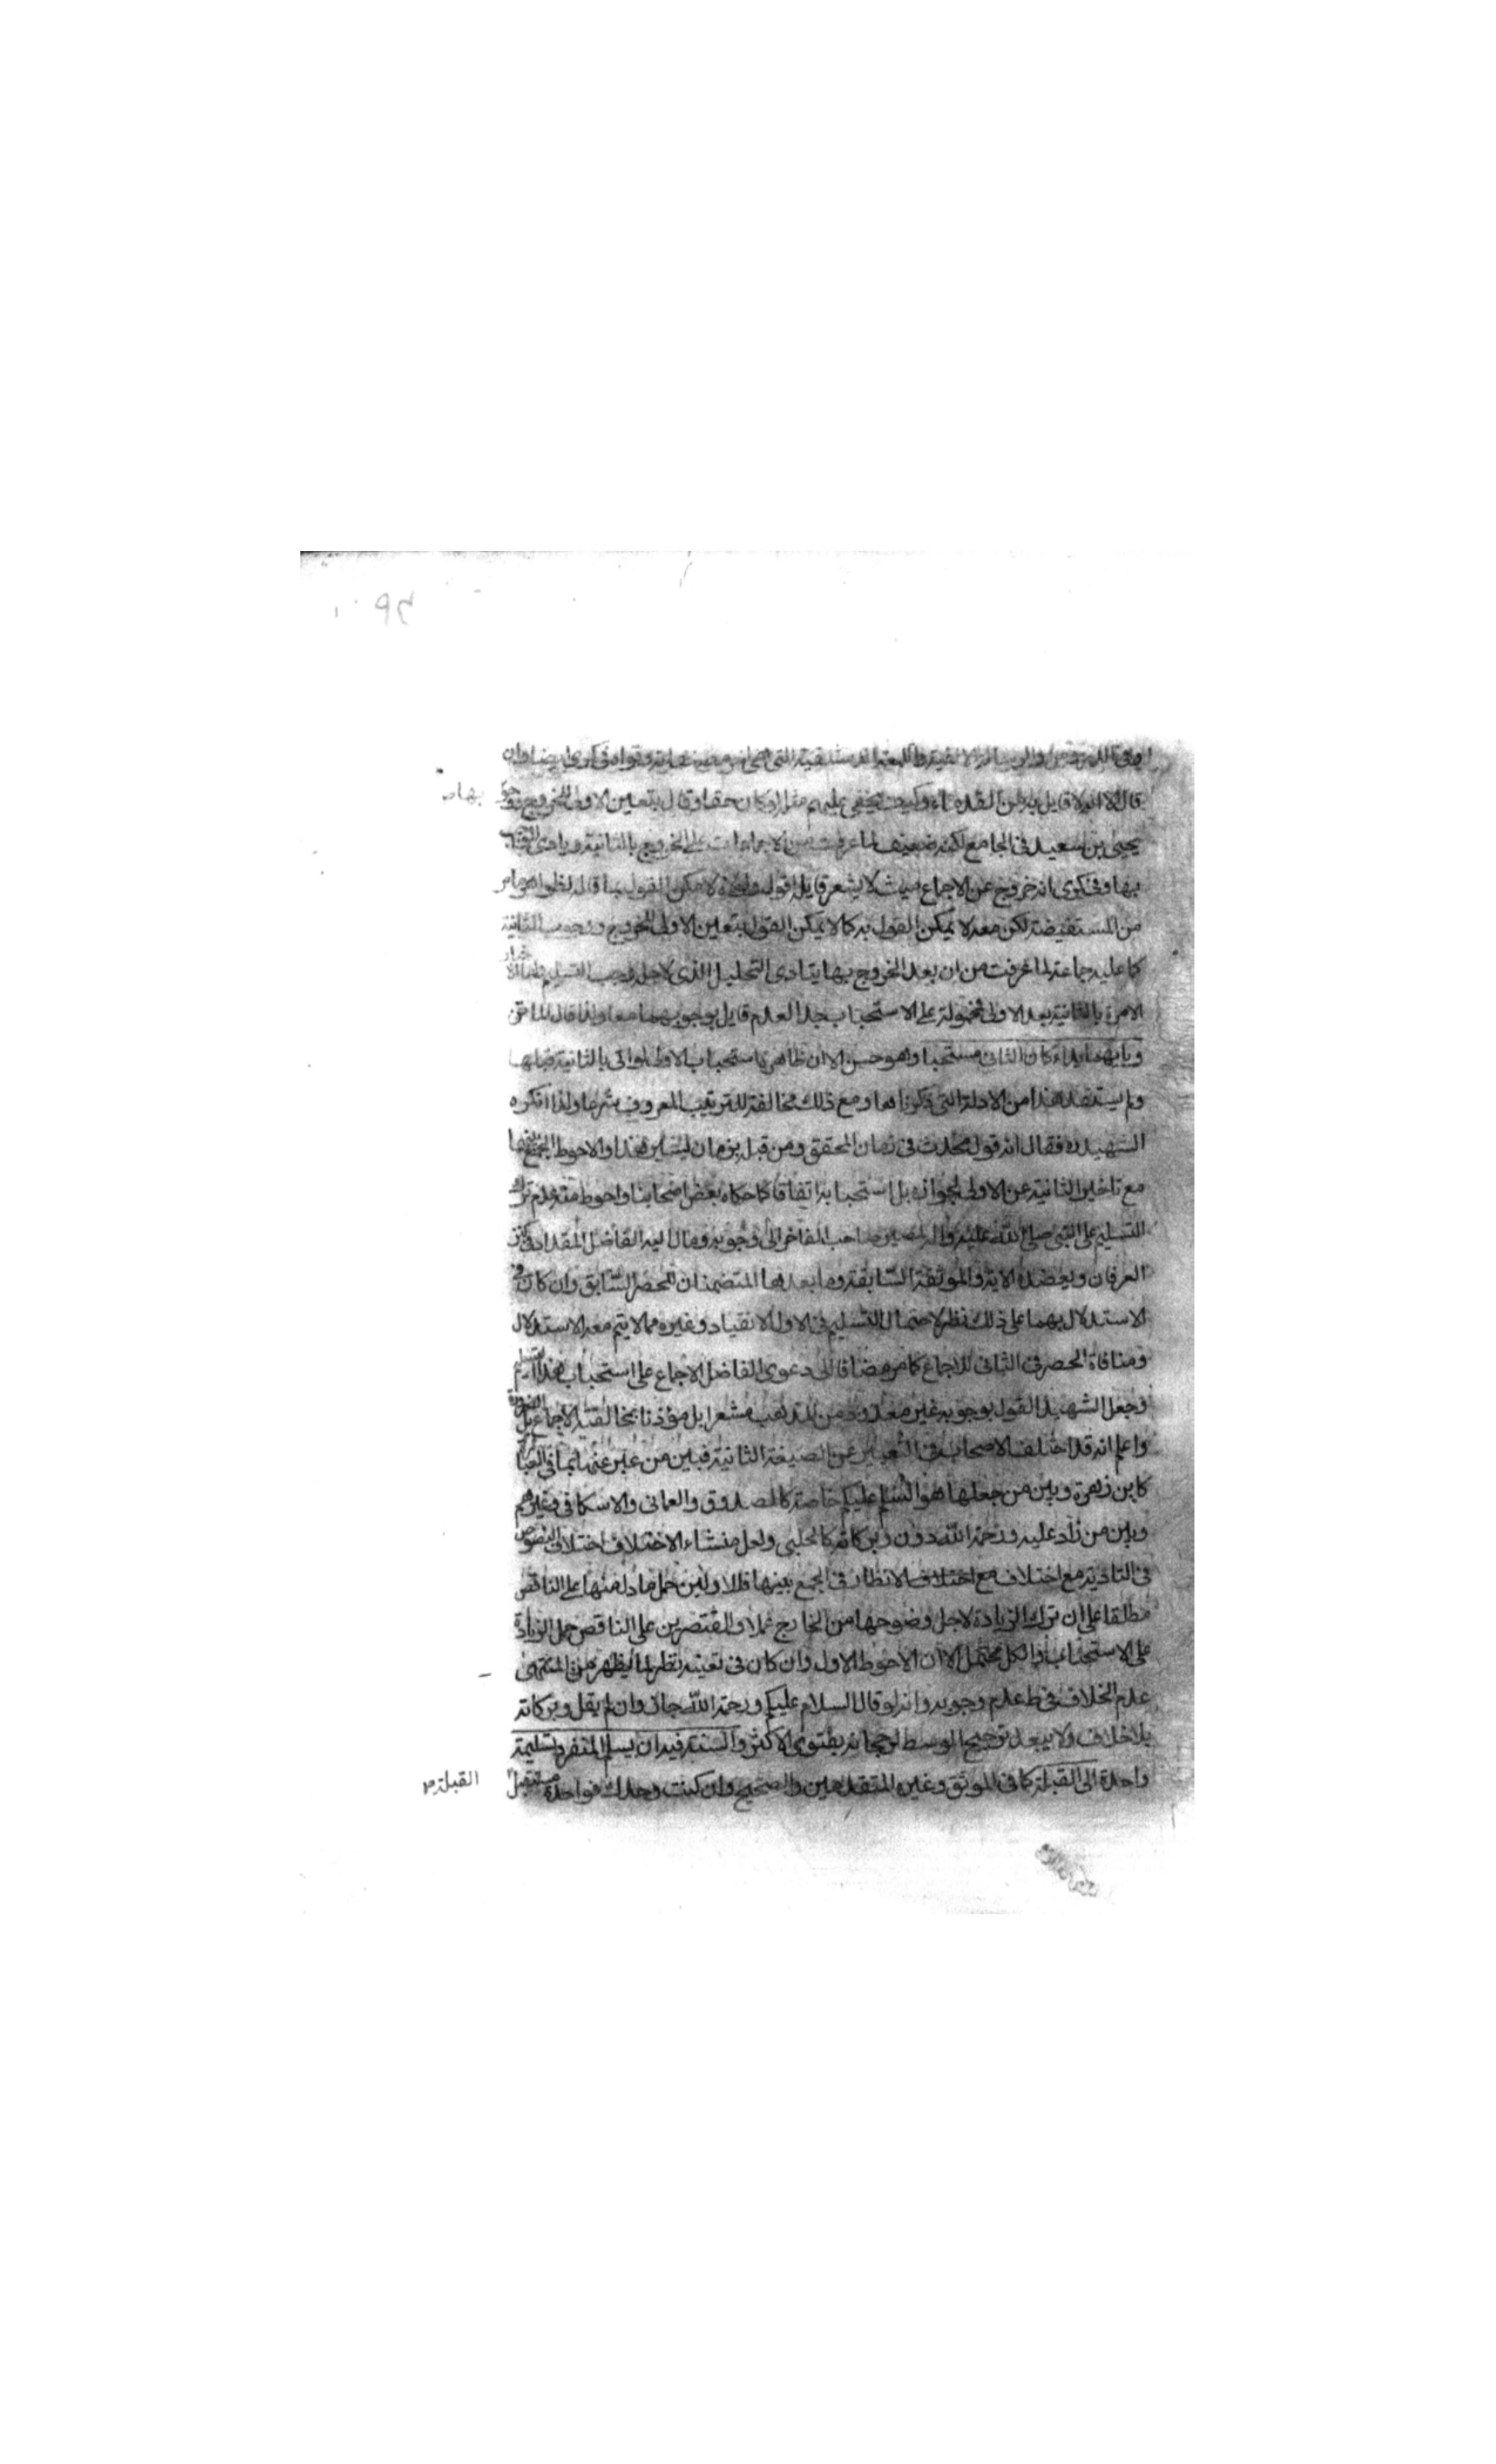 قال الا انه لا قايل به من القدماء وكيف يخفى عليهم مثله لو كان حقا وقال بتعين الاولى للخروج
بها صح
يحيى بن سعيد في الجامع لكنه ضعيف لما عرفت من الاجماعات على الخروج بالثانية
بها وفي كرى انه خروج عن الاجماع من حيث لا يشعر قايله اقول ولولاه لامكن القول بما قاله لظواهر ما مر
من المستفيضة لكن معه لا يمكن القول به كما لا يمكن القول بتعين الاولى للخروج ووجوب الثانية
كما عليه جماعة لما عرفت من ان بعد الخروج بها يتادى التحليل الذي لاجله وجب التسليم
الامرة بالثانية بعد الاولى محمولة على الاستحباب جدا لعدم قايل بوجوبهما معا ولذا قال الماتن
وبايهما بداء كان الثاني مستحبا وهو حسن الا ان ظاهره استحباب الاولى لو اتى بالثانية قبلها
ولم يستفد هذا من الادلة التي ذكرناها ومع ذلك مخالفة للترتيب المعروف شرعا ولذا انكره
الشهيد ره فقال انه قول محدث في زمان المحقق ومن قبله بزمان يسير هذا والاحوط الجمع بينهما
مع تاخير الثانية عن الاولى لجوازه بل استحبابه اتفاقا كما حكاه بعض اصحابنا واحوط منه عدم ترك
التسليم على النبي صلى الله عليه واله لمصير صاحب الفاخر الى وجوبه ومال اليه الفاضل المقداد في كنز
العرفان ويعضده الاية والموثقة السابقة وما بعدها المتضمنان للحصر السابق وان كان في
الاستدلال بهما على ذلك نظر لاحتمال التسليم في الاول الانقياد وغيره مما لا يتم معه الاستدلال
ومنافاة الحصر في الثاني للاجماع كما مر مضافا الى دعوى الفاضل الاجماع على استحباب هذا التسليم
وجعل الشهيد القول بوجوبه غير معدود من المذهب مشعرا بل مؤذنا بمخالفته الاجماع بل الضرورة
واعلم انه قد اختلف الاصحاب في التعبير عن الصيغة الثانية فبين من عبر عنها بما في العبارة
كابن زهرة وبين من جعلها هو السلم عليكم خاصة كالصدوق والعماني والاسكافي وغيرهم
وبين من زاد عليه ورحمة الله دون وبركاته كالحلبي ولعل منشاء الاختلاف اختلاف النصوص
في التادية مع اختلاف مع اختلاف الانظار في الجمع بينها فللاولين حمل ما دل منها على الناقص
مطلقا على ان ترك الزيادة لاجل وضوحها من الخارج عملا وللمقتصرين على الناقص حمل الزيادة
على الاستحباب والكل محتمل الا ان الاحوط الاول وان كان في تعينه نظر لما يظهر من المنتهى
عدم الخلاف في ط عدم وجوبه وانه لو قال السلام عليكم ورحمة الله جاز وان لم يقل وبركاته
بلا خلاف ولا يبعد ترجيح الوسط لرجحانه بفتوى الاكثر والسنة فيه ان يسلم المنفرد تسليمة
واحدة الى القبلة كما في الموثق وغيره المتقدمين والصحيح وان كنت وحدك فواحدة مستقبل
القبلة صح